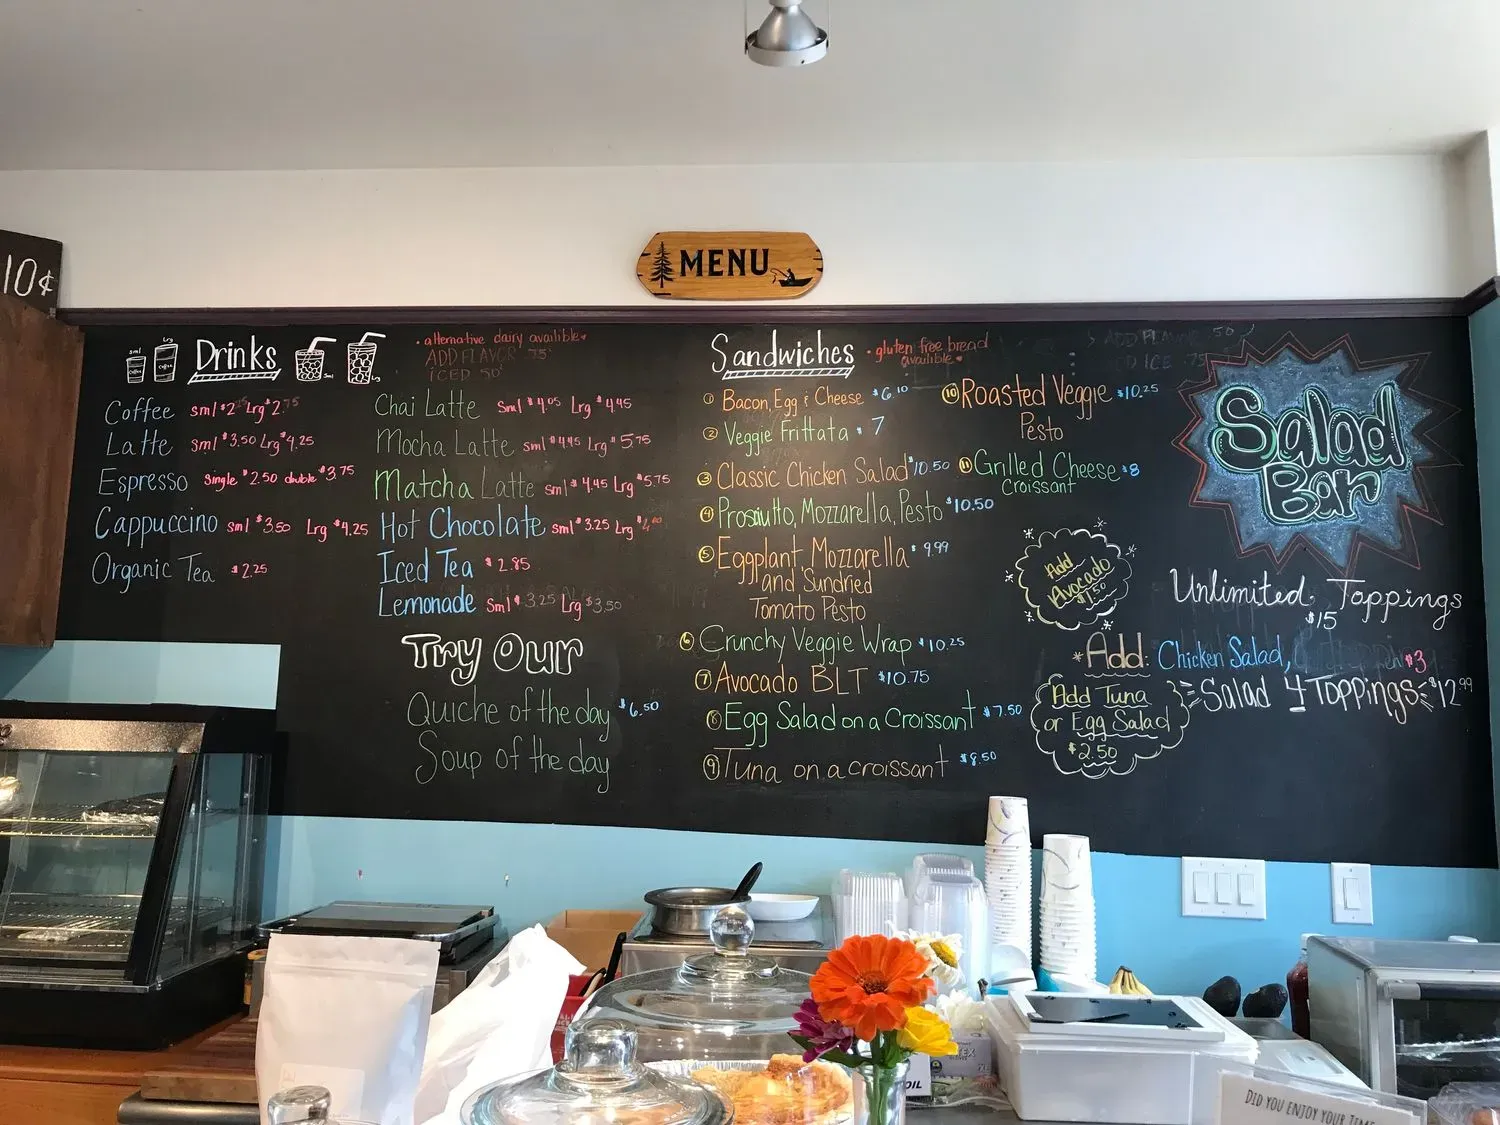 10¢
MENU
sml
lrg
COFFEE
COFFEE
Drinks
sml
Lrg
Coffee sml $2 Lrg $2.75
Latte sml $3.50 Lrg $4.25
Espresso Single $2.50 double $3.75
Cappuccino sml $3.50 Lrg $4.25
Organic Tea $2.25
• alternative dairy availible
ADD FLAVOR 75¢
ICED 50¢
Chai Latte Sml $4.05 Lrg $4.45
Mocha Latte sml $4.45 Lrg $5.75
Matcha Latte sml $4.45 Lrg $5.75
Hot Chocolate sml $3.25 Lrg
Iced Tea $2.85
Lemonade Sml $3.25 Lrg $3.50
Try Our
Quiche of the day $6.50
Soup of the day
Sandwiches
• gluten free bread
availible
① Bacon, Egg & Cheese $6.10
② Veggie Frittata $7
③ Classic Chicken Salad $10.50
④ Prosciutto, Mozzarella, Pesto $10.50
⑤ Eggplant, Mozzarella $9.99
and Sundried
Tomato Pesto
⑥ Crunchy Veggie Wrap $10.25
⑦ Avocado BLT $10.75
⑧ Egg Salad on a Croissant $7.50
⑨ Tuna on a croissant $8.50
ADD FLAVOR 50
ICE 75
⑩ Roasted Veggie $10.25
Pesto
⑪ Grilled Cheese $8
Croissant
Add
Avocado
$1.50
Salad
Bar
Unlimited Toppings
$15
*Add: Chicken Salad, $3
Add Tuna
or Egg Salad
$2.50
Salad 4 Toppings $12.99
OIL
DID YOU ENJOY YOUR TIME